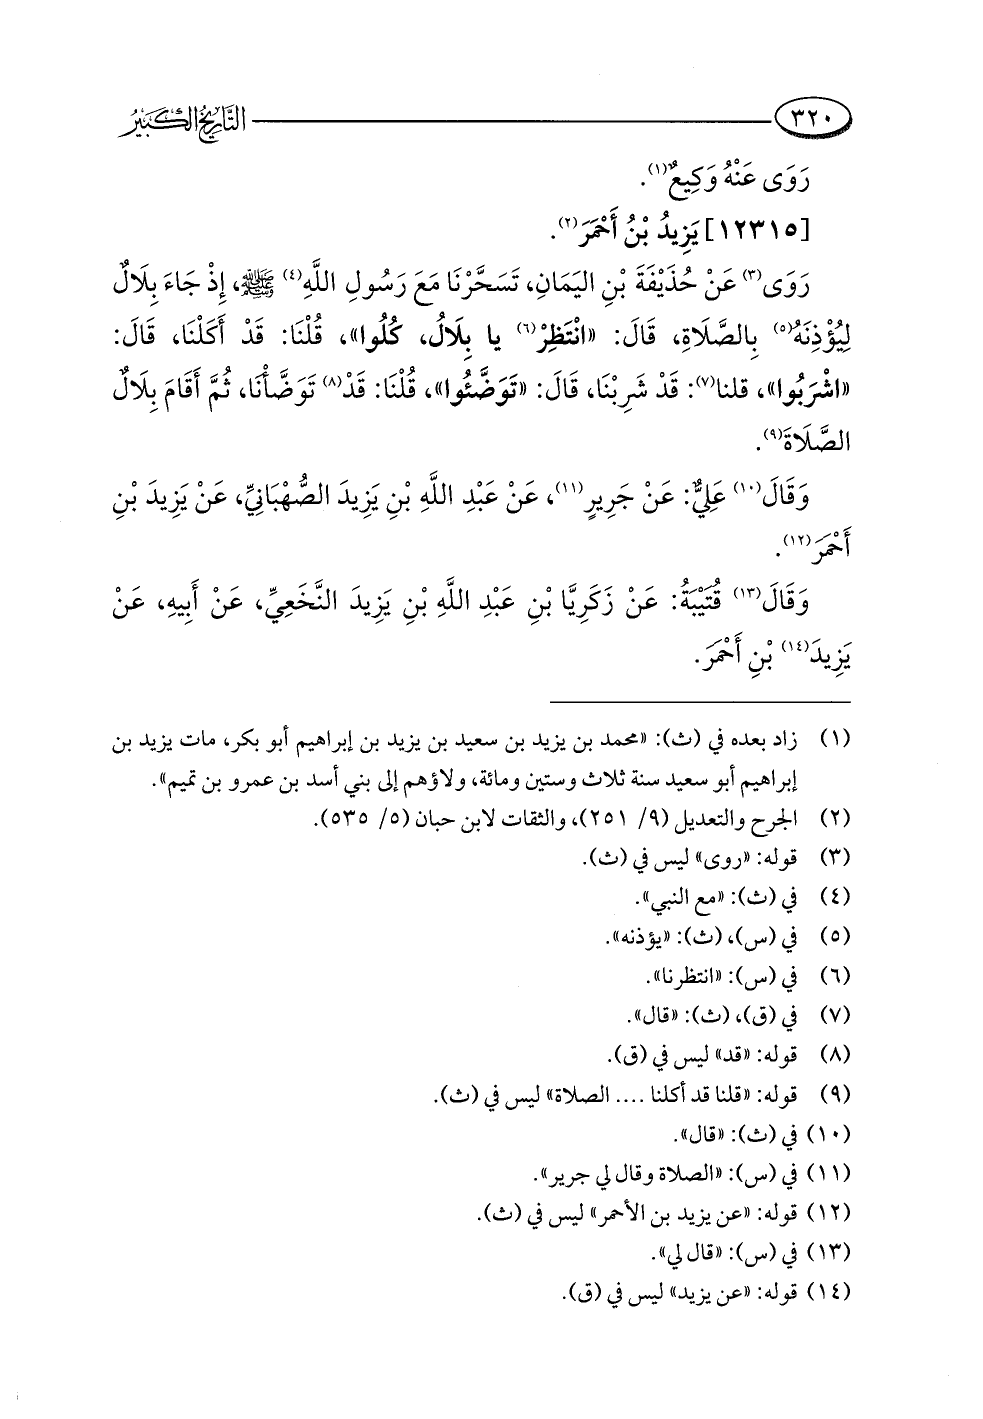 ٣٢٠ التاريخ الكبير
رَوَى عَنْهُ وَكِيعٌ(١).
[١٢٣١٥] يَزِيدُ بْنُ أَحْمَرَ(٢).
رَوَى(٣) عَنْ حُذَيْفَةَ بْنِ اليَمَانِ، تَسَحَّرْنَا مَعَ رَسُولِ اللَّهِ(٤) ﷺ، إِذْ جَاءَ بِلَالٌ
لِيُؤْذِنَهُ(٥) بِالصَّلَاةِ، قَالَ: «انْتَظِرْ(٦) يا بِلَالُ، كُلُوا»، قُلْنَا: قَدْ أَكَلْنَا، قَالَ:
«اشْرَبُوا»، قلنا(٧): قَدْ شَرِبْنَا، قَالَ: «تَوَضَّئُوا»، قُلْنَا: قَدْ(٨) تَوَضَّأْنَا، ثُمَّ أَقَامَ بِلَالٌ
الصَّلَاةَ(٩).
وَقَالَ(١٠) عَلِيٌّ: عَنْ جَرِيرٍ(١١)، عَنْ عَبْدِ اللَّهِ بْنِ يَزِيدَ الصُّهْبَانِيِّ، عَنْ يَزِيدَ بْنِ
أَحْمَرَ(١٢).
وَقَالَ(١٣) قُتَيْبَةُ: عَنْ زَكَرِيَّا بْنِ عَبْدِ اللَّهِ بْنِ يَزِيدَ النَّخَعِيِّ، عَنْ أَبِيهِ، عَنْ
يَزِيدَ(١٤) بْنِ أَحْمَرَ.
(١) زاد بعده في (ث): «محمد بن يزيد بن سعيد بن يزيد بن إبراهيم أبو بكر، مات يزيد بن
إبراهيم أبو سعيد سنة ثلاث وستين ومائة، ولاؤهم إلى بني أسد بن عمرو بن تميم».
(٢) الجرح والتعديل (٩/ ٢٥١)، والثقات لابن حبان (٥/ ٥٣٥).
(٣) قوله: «روى» ليس في (ث).
(٤) في (ث): «مع النبي».
(٥) في (س)، (ث): «يؤذنه».
(٦) في (س): «انتظرنا».
(٧) في (ق)، (ث): «قال».
(٨) قوله: «قد» ليس في (ق).
(٩) قوله: «قلنا قد أكلنا .... الصلاة» ليس في (ث).
(١٠) في (ث): «قال».
(١١) في (س): «الصلاة وقال لي جرير».
(١٢) قوله: «عن يزيد بن الأحمر» ليس في (ث).
(١٣) في (س): «قال لي».
(١٤) قوله: «عن يزيد» ليس في (ق).